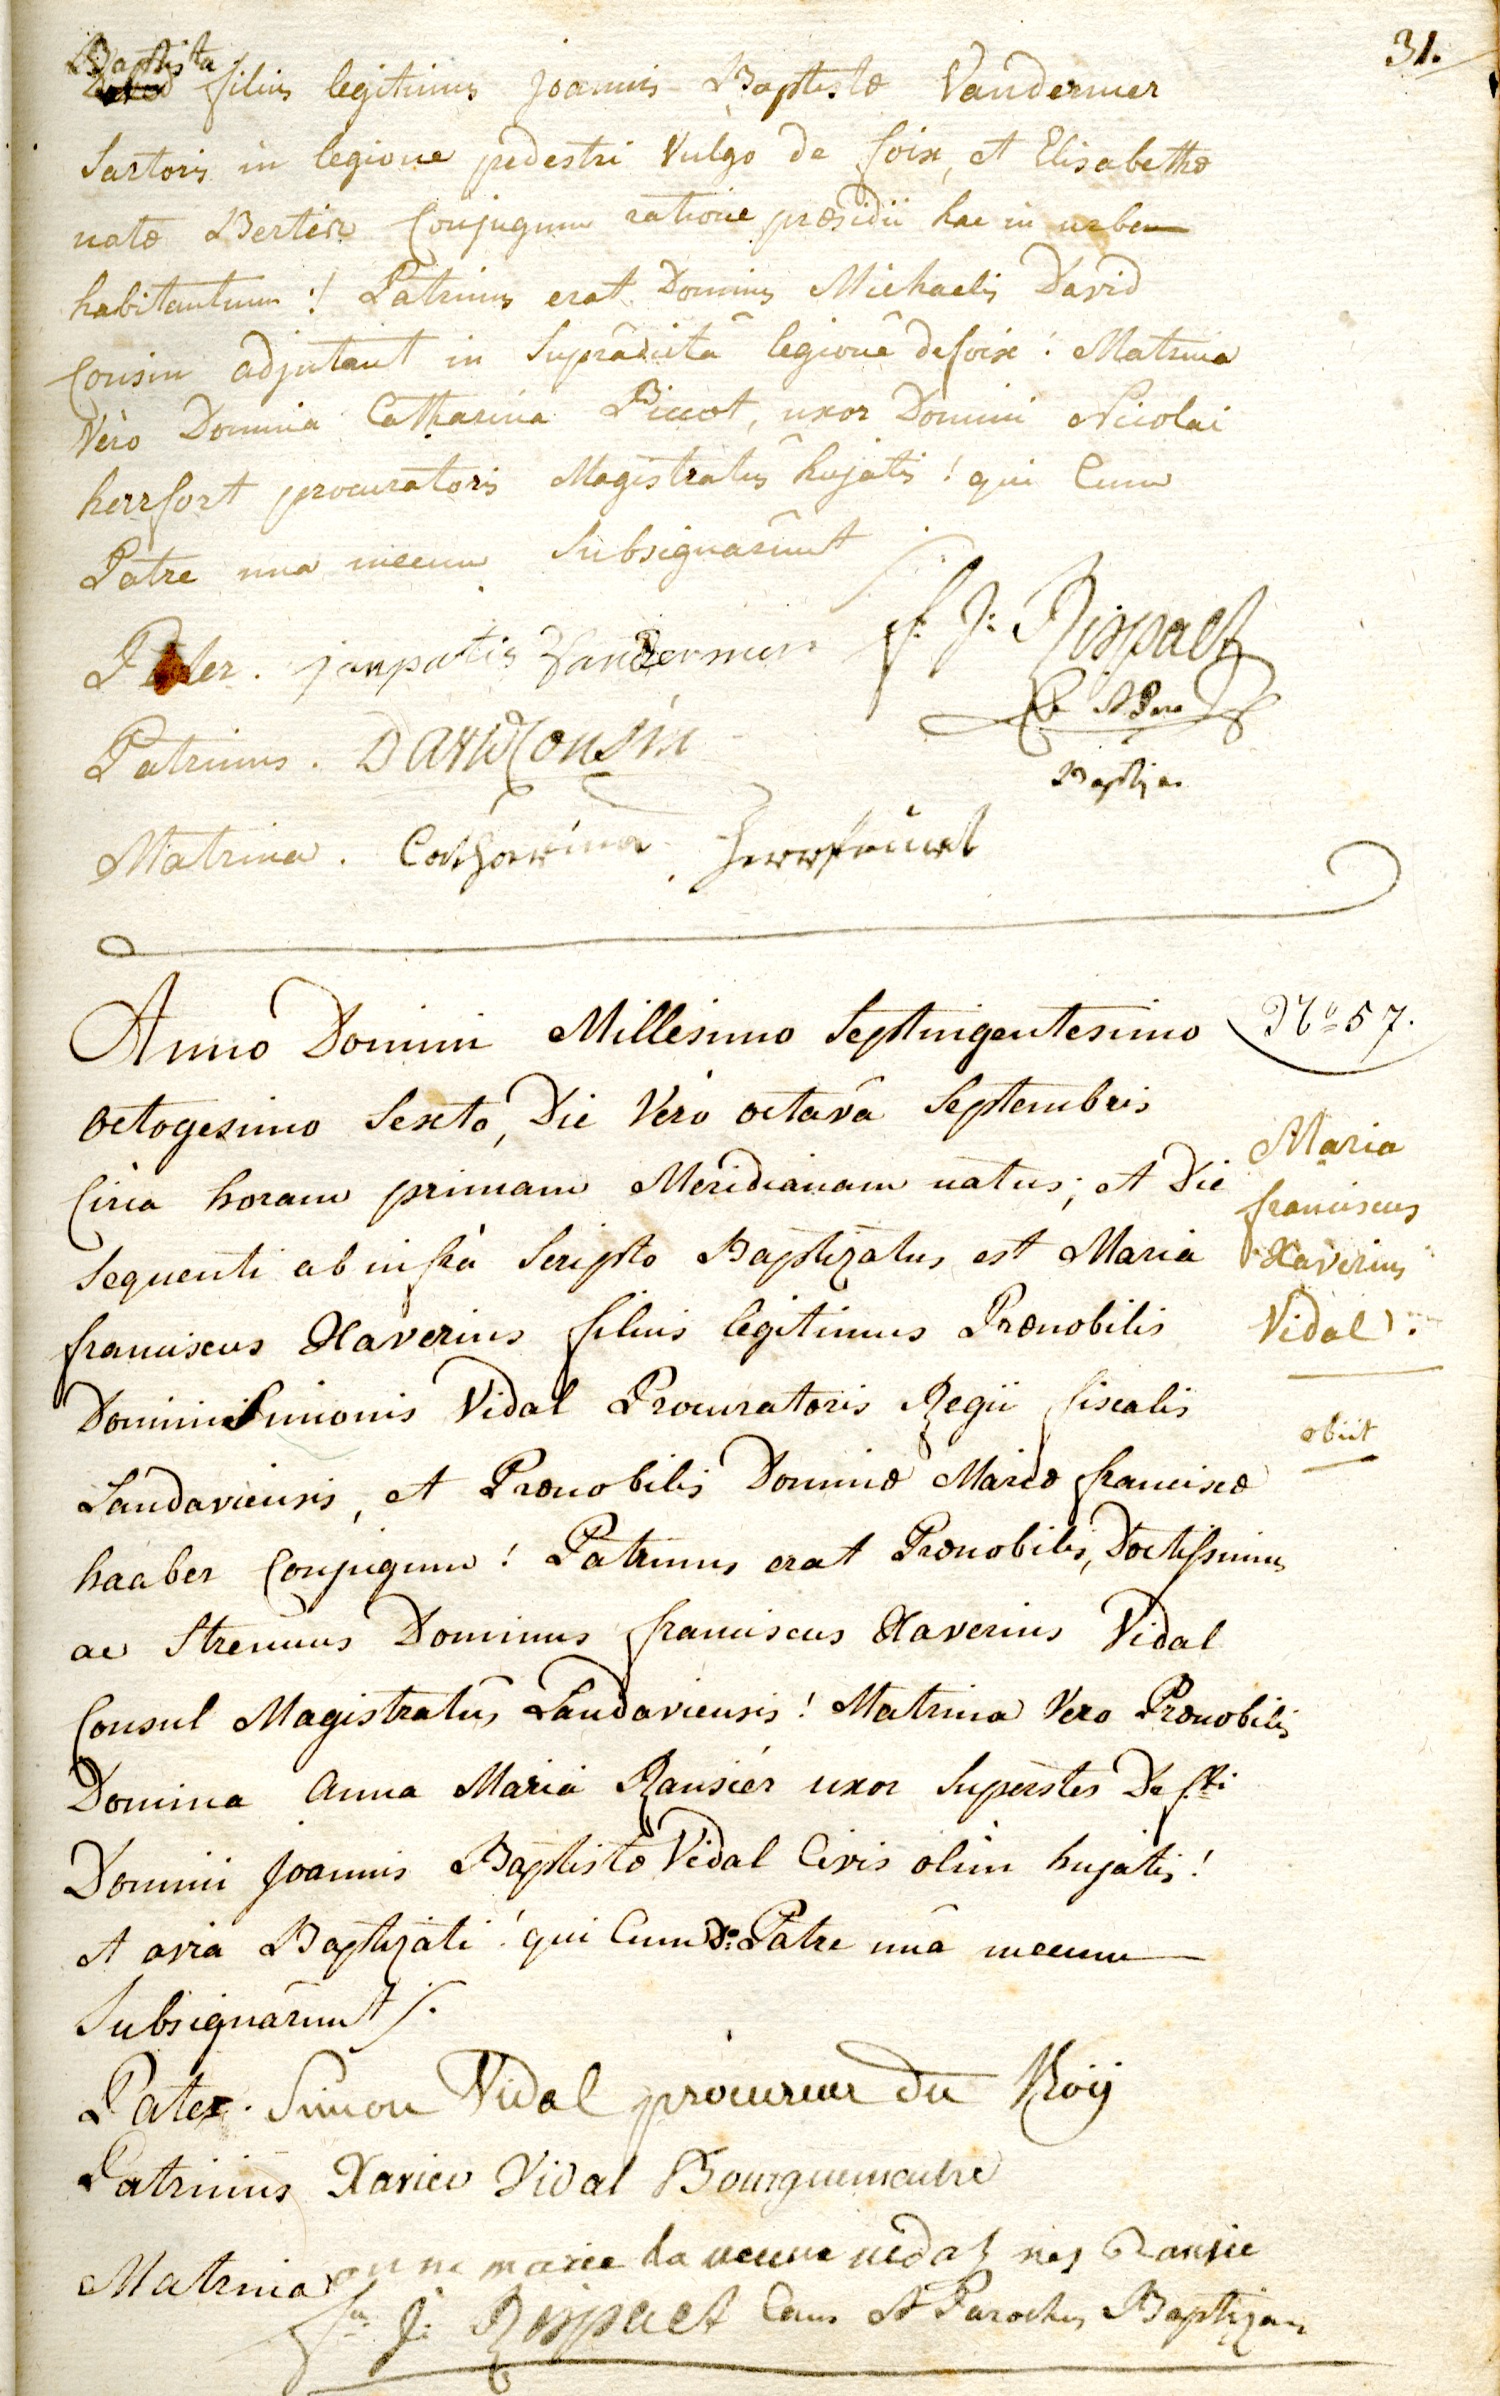 31.
Baptista
filius legitimus Joannis Baptistæ Vandermer
Sartoris in legione pedestri Vulgo de foix, et Elisabethæ
natæ Bertier Conjugum ratione præsidii hac in urbe
habitantium :/ Patrinus erat Dominus Michaelis David
Cousin adjutant in Supradictâ legionê de foix ! Matrina
Vero Domina Catharina Piccot, uxor Domini Nicolai
herrfort procuratoris Magistratûs hujatis ! qui Cum
Patre una mecum Subsignârunt
Pater. janpatis Vandermer f. J: Rispact
Patrinus. David Cousin
Baptizans
Matrina. Catharina Herrfort
Anno Domini Millesimo Septingentesimo
octogesimo Sexto, Die Vero octavâ Septembris
Circa horam primam Meridianam natus; et Die
Sequenti ab infrà Scripto Baptizatus est Maria
franciscus Xaverius filius legitimus Prænobilis
Domini Simonis Vidal Procuratoris Regii fiscalis
Landaviensis, et Prænobilis Dominæ Mariæ franciscæ
haaber Conjugum ! Patrinus erat Prænobilis, Doctissimus
ac Strenuus Dominus franciscus Xaverius Vidal
Consul Magistratûs Landaviensis ! Matrina Vero Prænobilis
Domina Anna Maria Ransiér uxor Superstes Defti
Domini Joannis Baptistæ Vidal Civis olim hujatis !
et avia Baptizati ! qui Cum Do: Patre unâ mecum
Subsignârunt /.
Nº 57.
Maria
franciscus
Xaverius
Vidal.
obiit
Pater. Simon Vidal procureur du Roÿ
Patrinus Xavier Vidal Bourguemaitre
Matrina anne marie la veuve vidal neé Ransié
J: Rispact Can. Parochus Baptizans